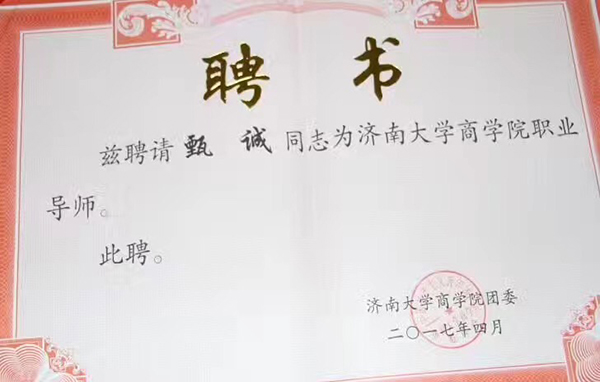 聘 书
兹聘请 甄 诚 同志为济南大学商学院职业
导师。
此聘。
济南大学商学院团委
二〇一七年四月